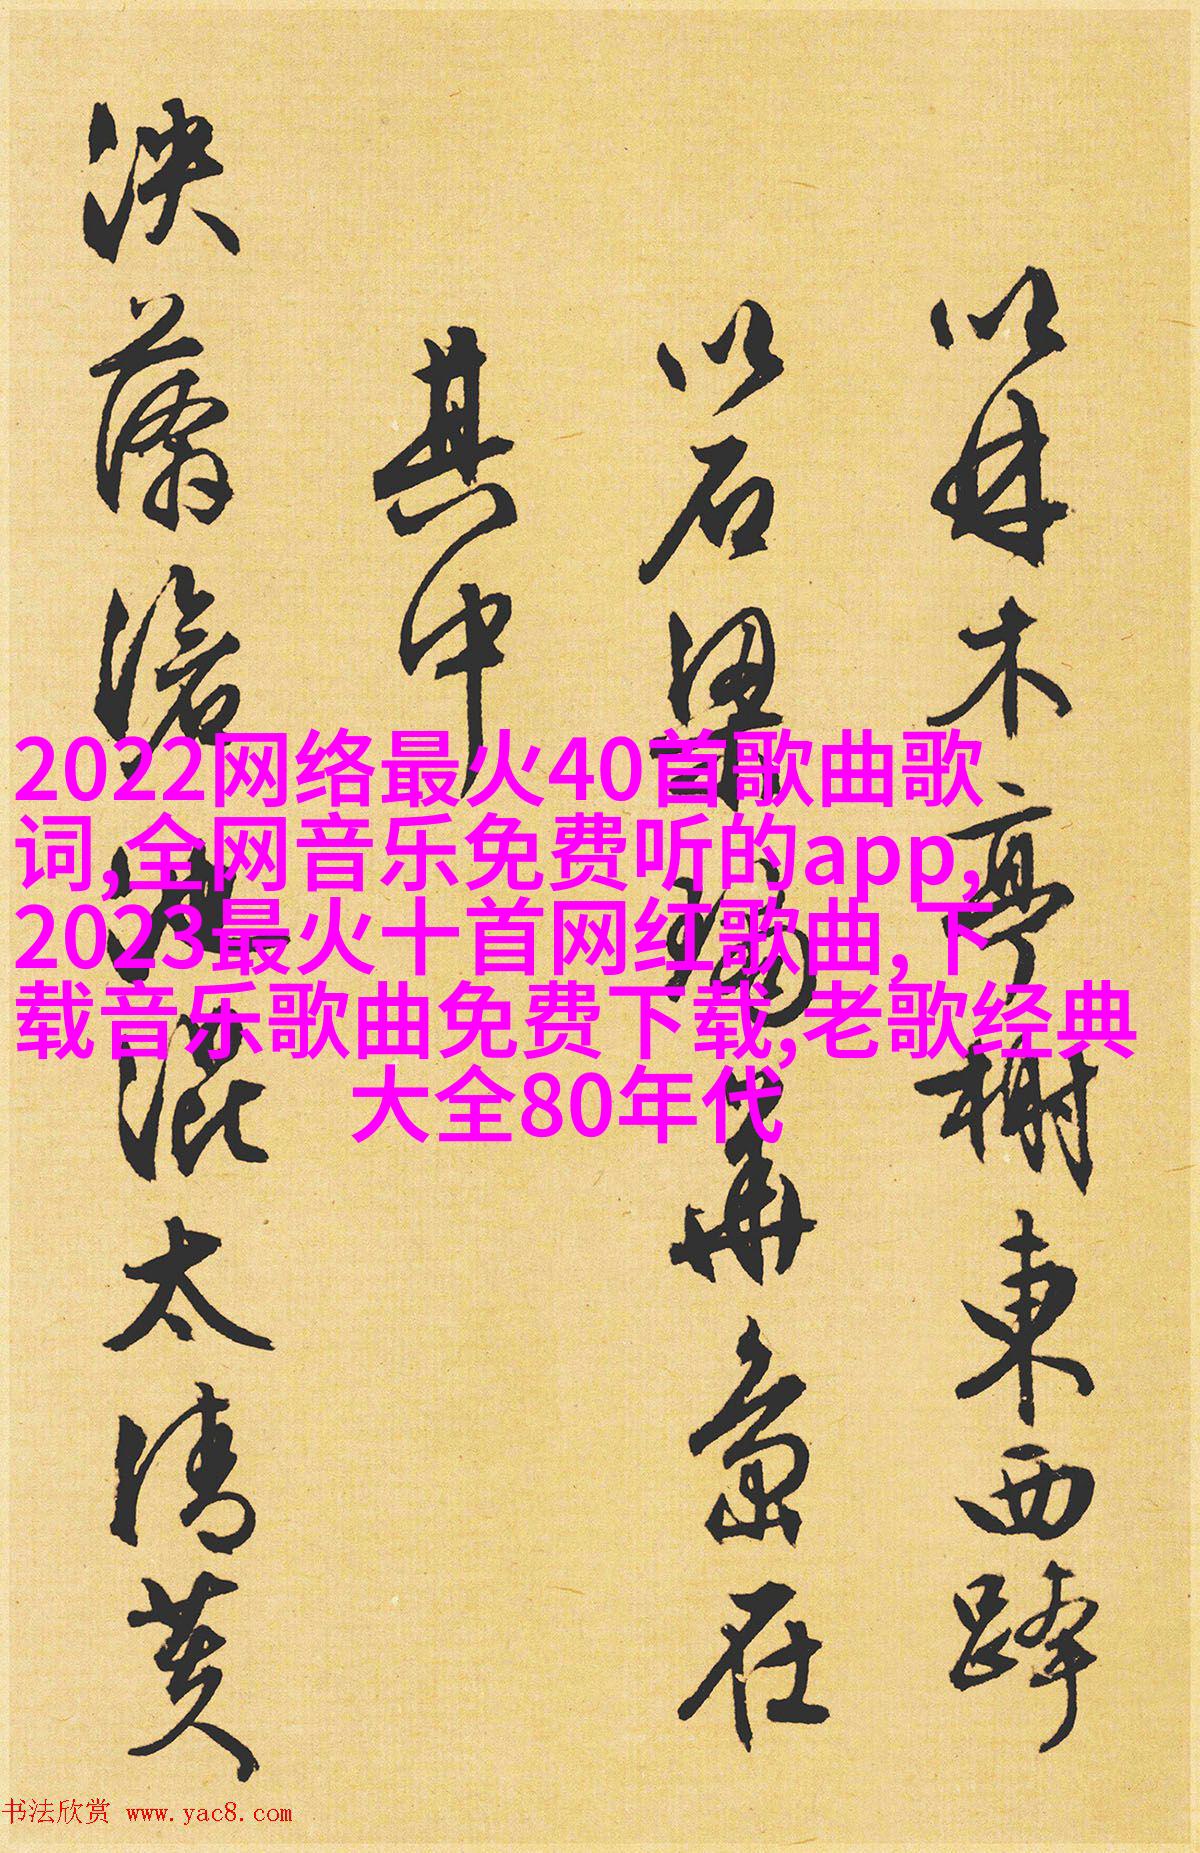 以林木亭榭東西跨
以石梁瓊華島在
其中
泱漭滄池混太清芙
2022网络最火40首歌曲歌
词,全网音乐免费听的app,
2023最火十首网红歌曲,下
载音乐歌曲免费下载,老歌经典
大全80年代
书法欣赏 www.yac8.com